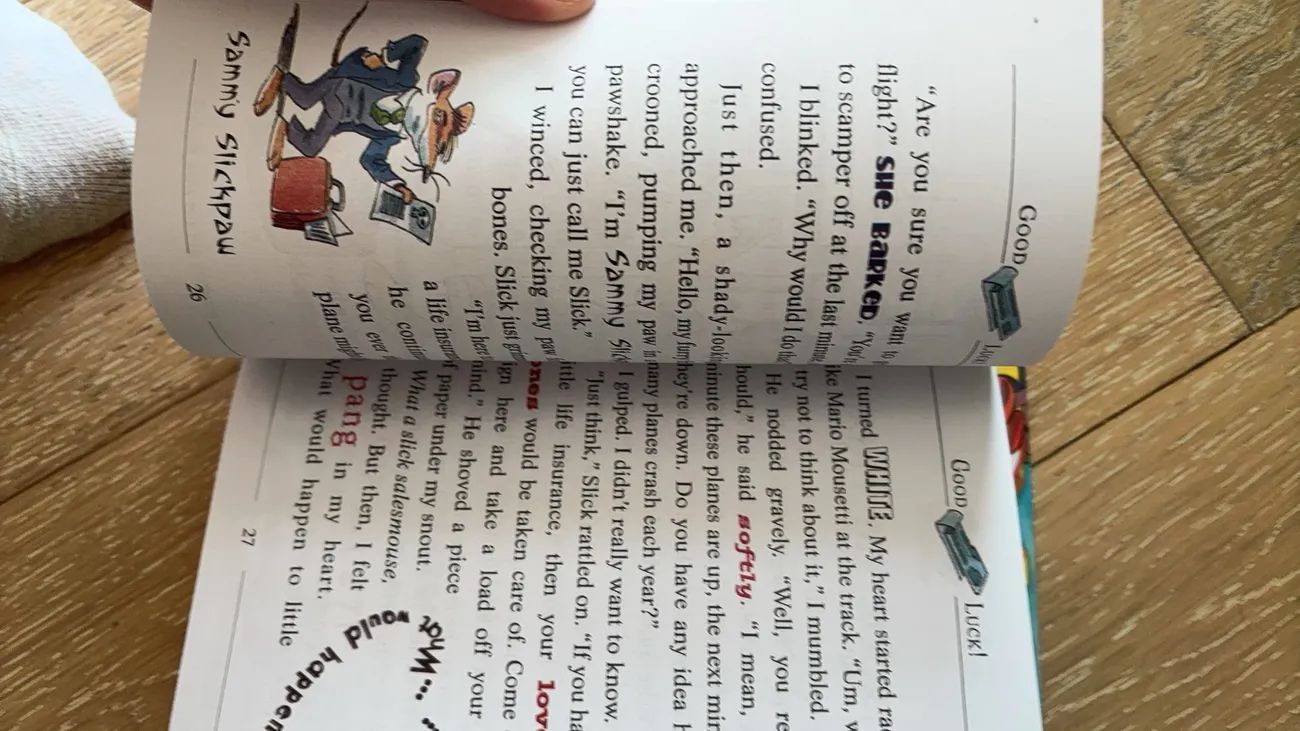 GOOD
"Are you sure you want to
flight?" SHE BARKED. "You
to scamper off at the last minute
I blinked. "Why would I do
confused.
Just then, a shady-looking
approached me. "Hello, my
crooned, pumping my paw in
pawshake. "I'm Sammy
you can just call me Slick."
I winced, checking my paw
bones. Slick just
"I'm here
a life
he
you ever
plane
Sammy Slickpaw
26
GOOD LUCK!
I turned WHITE. My heart started
like Mario Mousetti at the track. "Um,
try not to think about it," I mumbled.
He nodded gravely. "Well, you
he said softly. "I mean,
minute these planes are up, the next
they're down. Do you have any idea
many planes crash each year?"
I gulped. I didn't really want to know.
"Just think," Slick rattled on. "If you
little life insurance, then your
would be taken care of. Come
here and take a load off your
He shoved a piece
of paper under my snout.
What a slick salesmouse,
thought. But then, I felt
pang in my heart.
What would happen to little
"...What
would happen
27